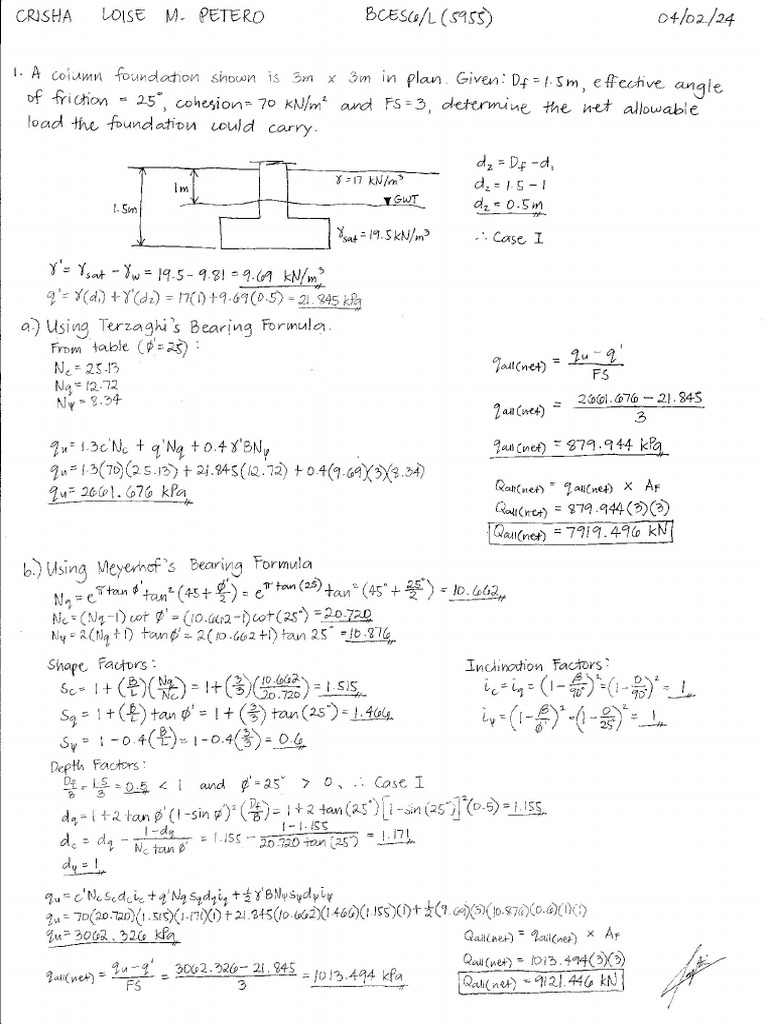 CRISHA LOISE M. PETERO BCES6/L (5955) 04/02/24
1. A column foundation shown is 3m x 3m in plan. Given: Df = 1.5m, effective angle
of friction = 25°, cohesion = 70 kN/m² and FS = 3, determine the net allowable
load the foundation could carry.
1.5m
1m
γ = 17 kN/m³
GWT
γsat = 19.5 kN/m³
d₂ = Df - d₁
d₂ = 1.5 - 1
d₂ = 0.5m
∴ Case I
γ' = γsat - γw = 19.5 - 9.81 = 9.69 kN/m³
q' = γ(d₁) + γ'(d₂) = 17(1) + 9.69(0.5) = 21.845 kPa
a.) Using Terzaghi's Bearing Formula.
From table (φ' = 25) :
Nc = 25.13
Nq = 12.72
Nγ = 8.34
qu = 1.3c'Nc + q'Nq + 0.4γ'BNγ
qu = 1.3(70)(25.13) + 21.845(12.72) + 0.4(9.69)(3)(8.34)
qu = 2661.676 kPa
qall(net) = (qu - q') / FS
qall(net) = (2661.676 - 21.845) / 3
qall(net) = 879.944 kPa
Qall(net) = qall(net) x AF
Qall(net) = 879.944(3)(3)
Qall(net) = 7919.496 kN
b.) Using Meyerhof's Bearing Formula
Nq = e^(π tan φ') tan²(45 + φ'/2) = e^(π tan(25)) tan²(45° + 25°/2) = 10.662
Nc = (Nq-1) cot φ' = (10.662-1) cot(25°) = 20.720
Nγ = 2(Nq+1) tan φ' = 2(10.662+1) tan 25° = 10.876
Shape Factors:
Sc = 1 + (B/L)(Nq/Nc) = 1 + (3/3)(10.662/20.720) = 1.515
Sq = 1 + (B/L) tan φ' = 1 + (3/3) tan(25°) = 1.466
Sγ = 1 - 0.4(B/L) = 1 - 0.4(3/3) = 0.6
Inclination Factors:
ic = iq = (1 - β/90°)² = (1 - 0/90°)² = 1
iγ = (1 - β/φ')² = (1 - 0/25°)² = 1
Depth Factors:
Df/B = 1.5/3 = 0.5 < 1 and φ' = 25° > 0, ∴ Case I
dq = 1 + 2 tan φ' (1 - sin φ')² (Df/B) = 1 + 2 tan(25°)[1 - sin(25°)]² (0.5) = 1.155
dc = dq - (1 - dq)/(Nc tan φ') = 1.155 - (1 - 1.155)/(20.720 tan(25°)) = 1.171
dγ = 1
qu = c'NcScdcic + q'NqSqdqiq + ½γ'BNγSγdγiγ
qu = 70(20.720)(1.515)(1.171)(1) + 21.845(10.662)(1.466)(1.155)(1) + ½(9.69)(3)(10.876)(0.6)(1)(1)
qu = 3062.326 kPa
qall(net) = (qu - q') / FS = (3062.326 - 21.845) / 3 = 1013.494 kPa
Qall(net) = qall(net) x AF
Qall(net) = 1013.494(3)(3)
Qall(net) = 9121.446 kN